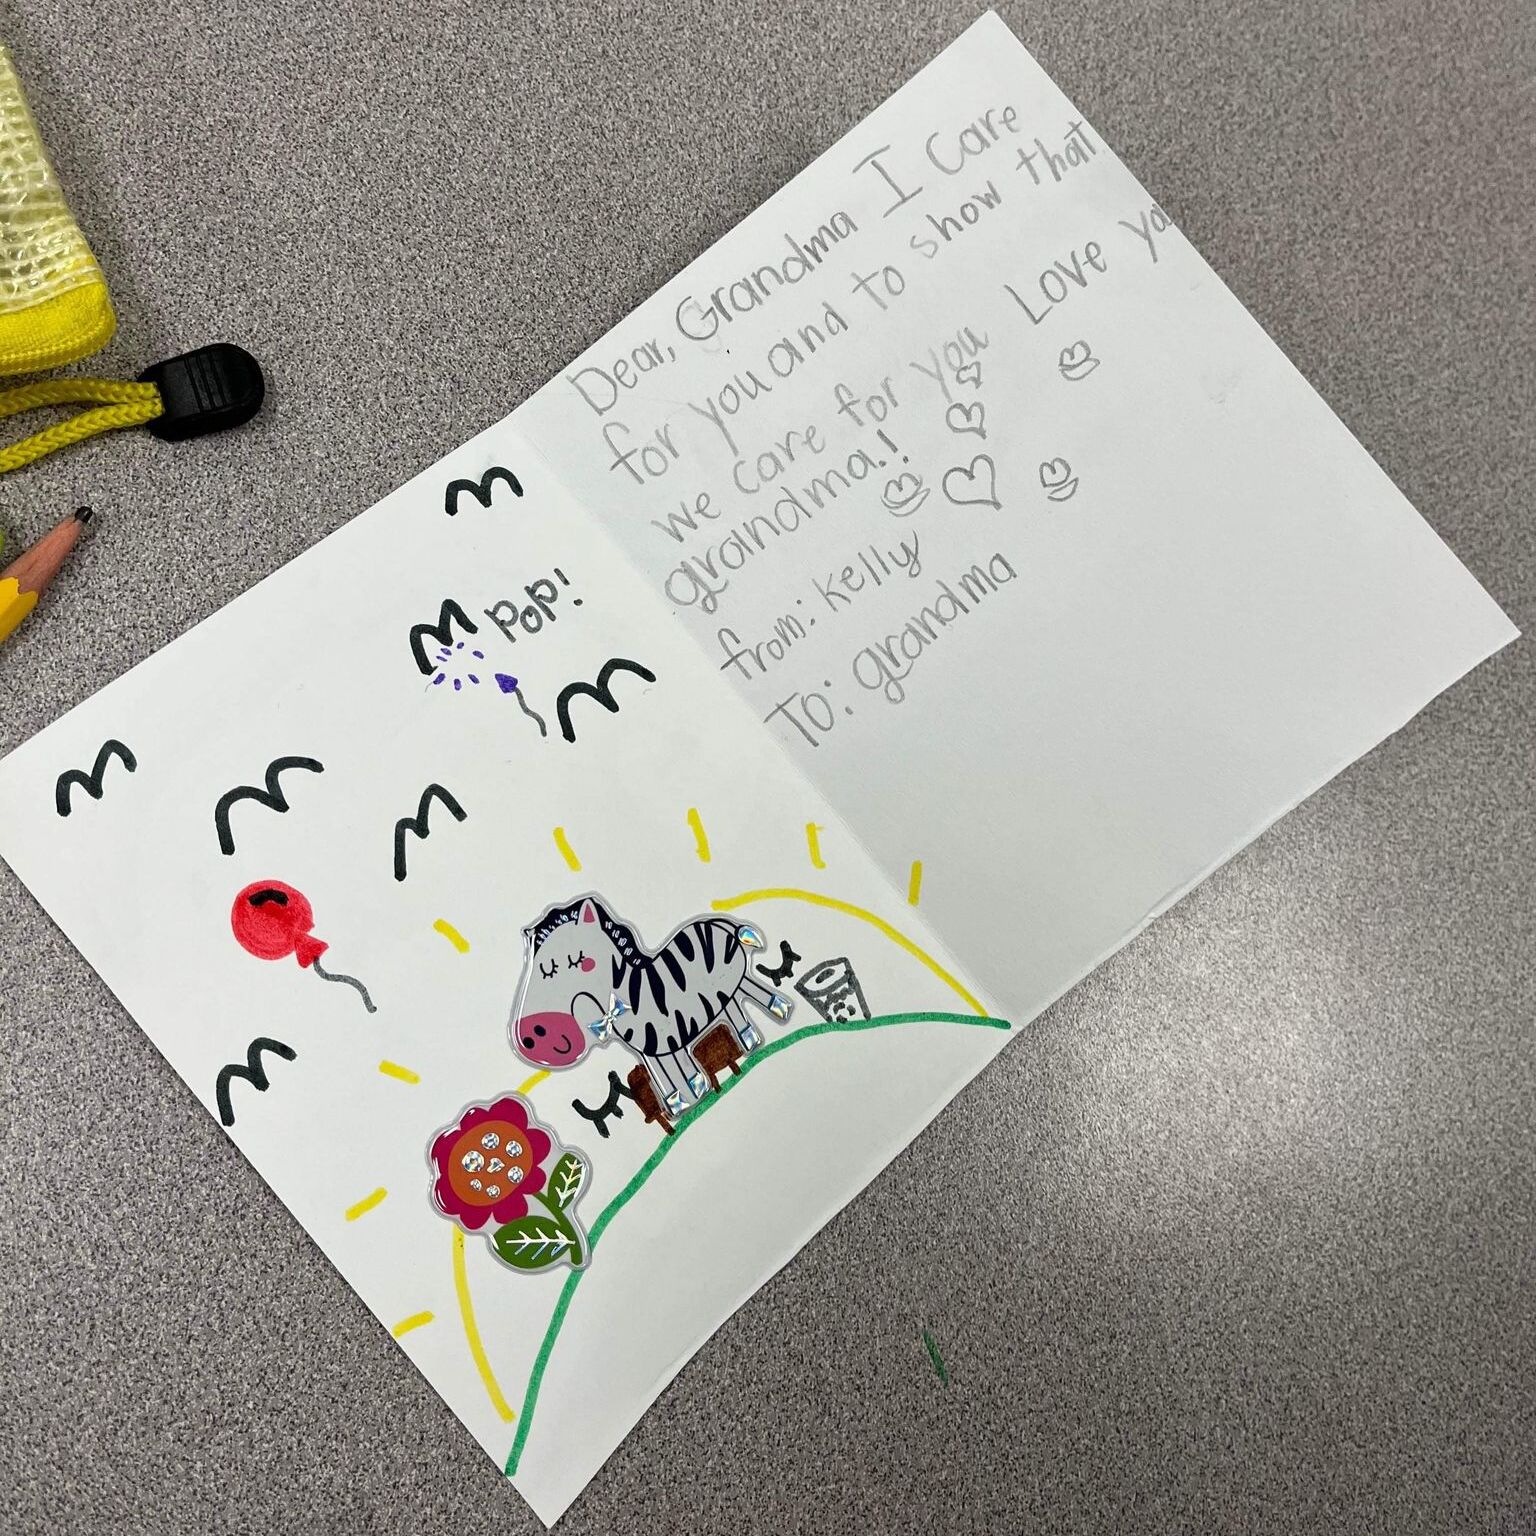 Dear, Grandma I Care
for you and to show that
we care for you Love ya
grandma!
from: kelly
To: grandma
pop!